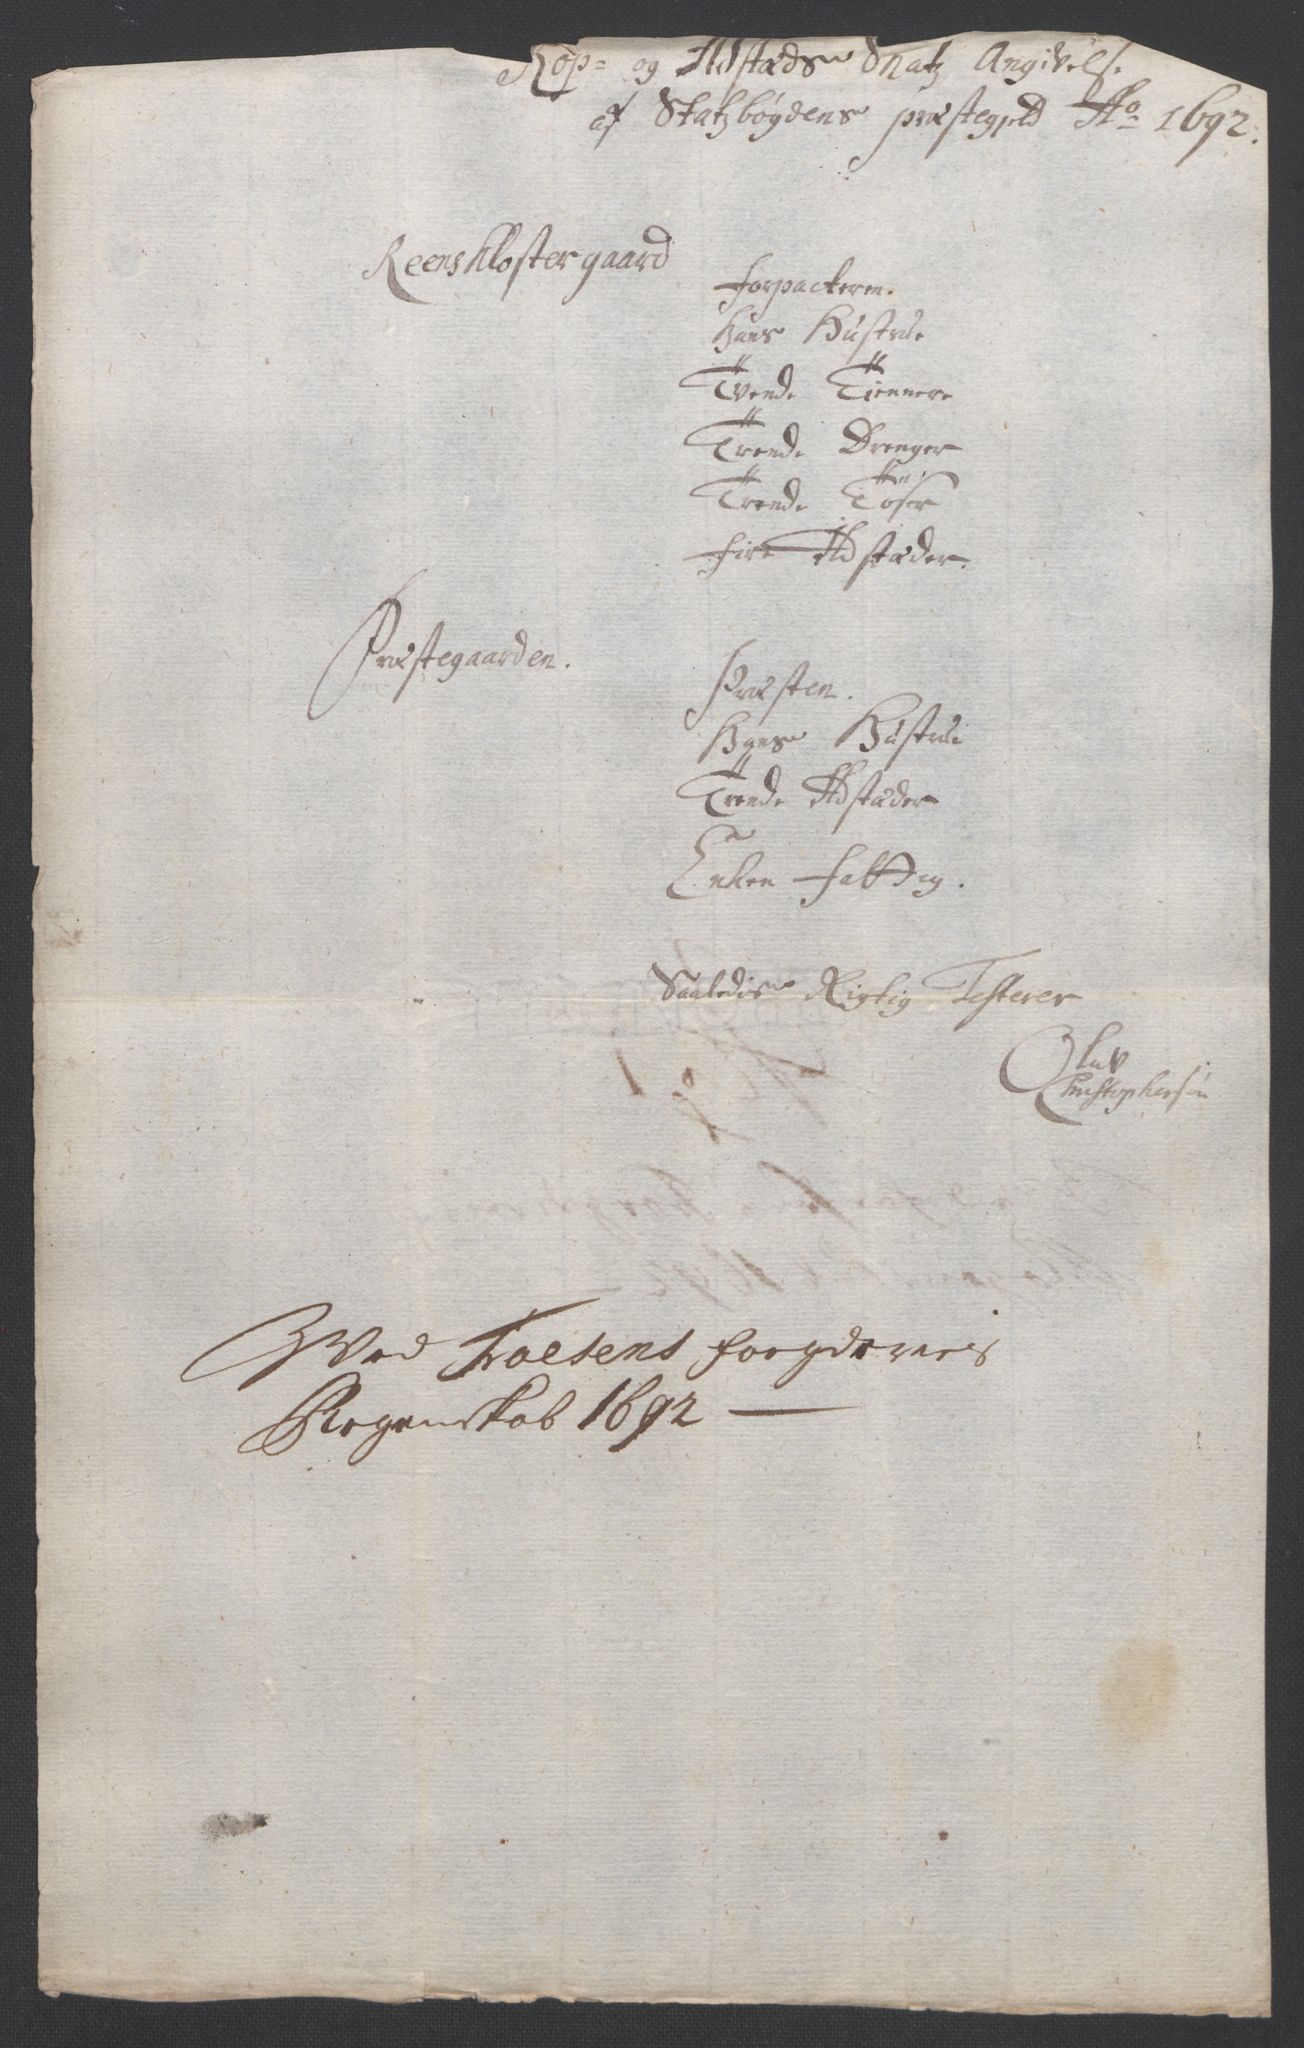 Kop= og Ildstæds Skatz Angivelse
af Statzbøgdens præstegield Ao 1692.
Reens Kloster gaard
forpackeren.
hans Hustrue
Tvende Tienner
Trende Drenger
Trende Tøser
fire Ildstæder.
Præstegaarden.
Præsten.
hans Hustrue
Trende Ildstæder
Enken fattig.
Saaledis Rigtig Testerer
Oluv
Christophersøn
Wed Foesens fogderies
Regenskab 1692 —